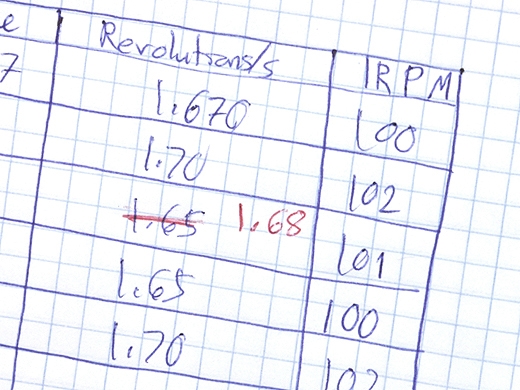 e Revolutions/s RPM
7 1.670 100
1.70 102
1.65 1.68 101
1.65 100
1.70 102